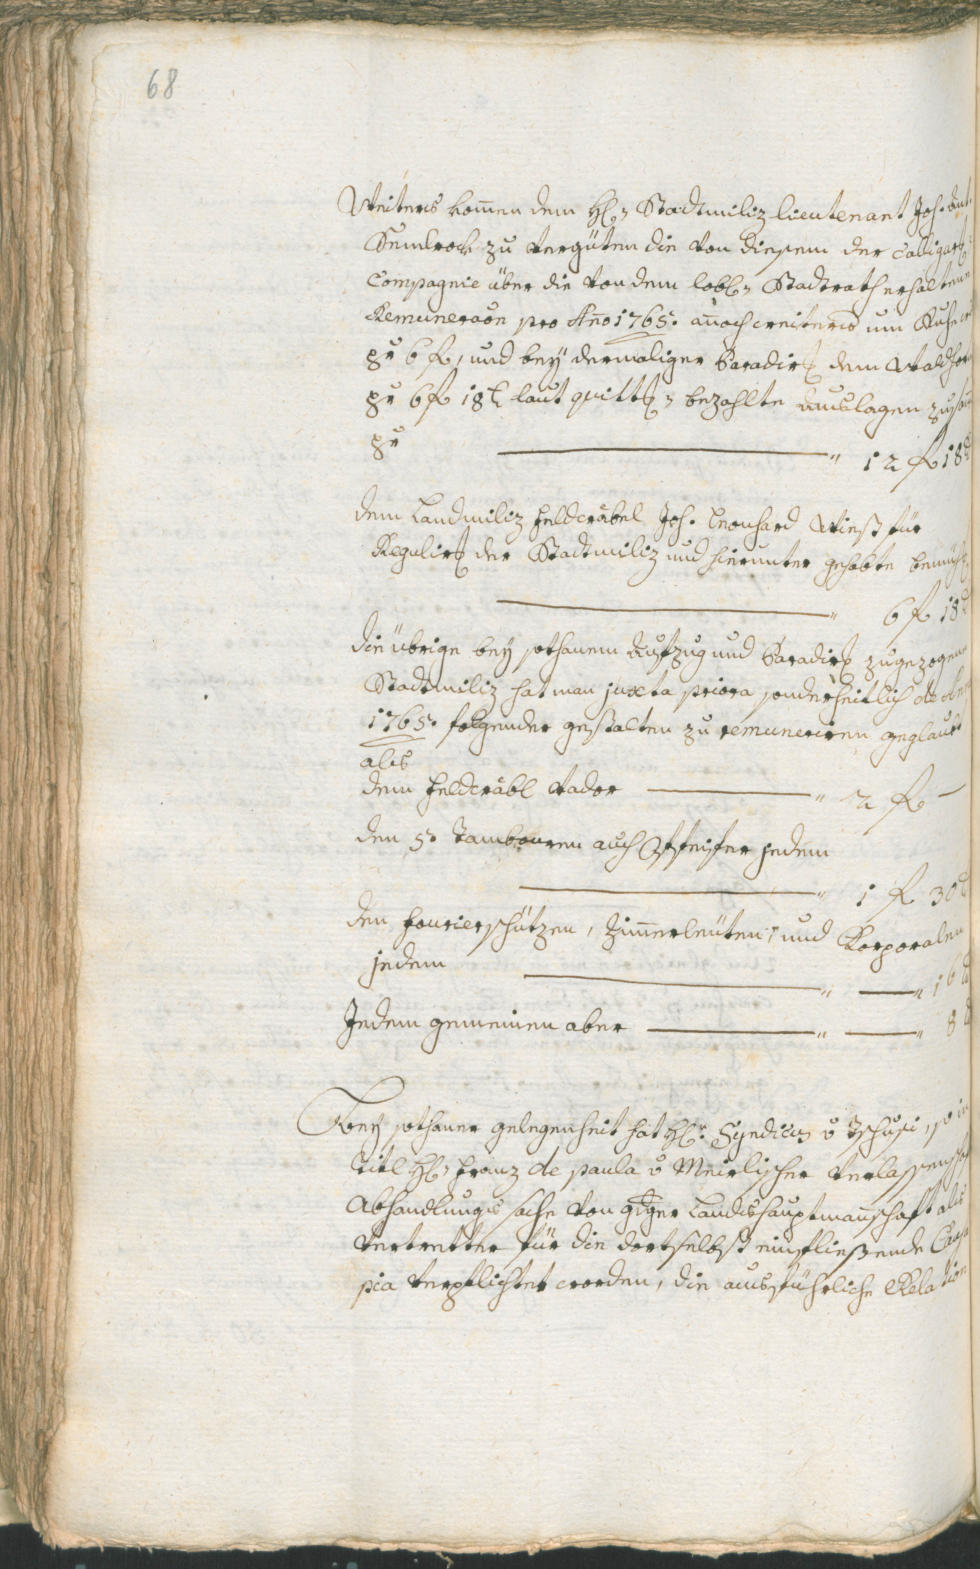 68
Weiters komen dem H: Stadtmiliz lieutenant Joh: Ant
Semlrock zu vergüten die von diesem der
Compagnie über die von dem lobl: Stadtrath erhaltene
Remuneraon pro Ano 1765. anoch weiters um
pr 6 f, und bey dermaliger Paradir dem Waldho
pr 6 f 18 x laut quitt: bezahlte Auslagen zusam
pr 12 f 18 x
dem Landmiliz feldwäbel Joh. Leonhard Wieß für
Regulir der Stadtmiliz und hierunter gehabte bemüh
6 f 18 x
die übrige bey sothanem Aufzug und Paradir zugezogene
Stadtmiliz hat man juxta priora sonderheitlich de Ano
1765. folgender gestalten zu remuneriren geglaubt
als
dem feldwäbl Vador 2 f —
den 5. Tambouren auch Pfeifer jedem
1 f 30 x
den fourierschützen, Zimerleuten, und Korporalen
jedem — 16 x
Jedem gemeinen aber — 8 x
Bey sothaner gelegenheit hat H: Syndicus v Tschusi, so in
titl H: Franz de paula v Meirlischer Verlassenschaf
Abhandlungs sache von Landshauptmanschaft als
Vertretter für die dortselbst einfließende Causa
pia verpflichtet worden, die ausführliche Relation